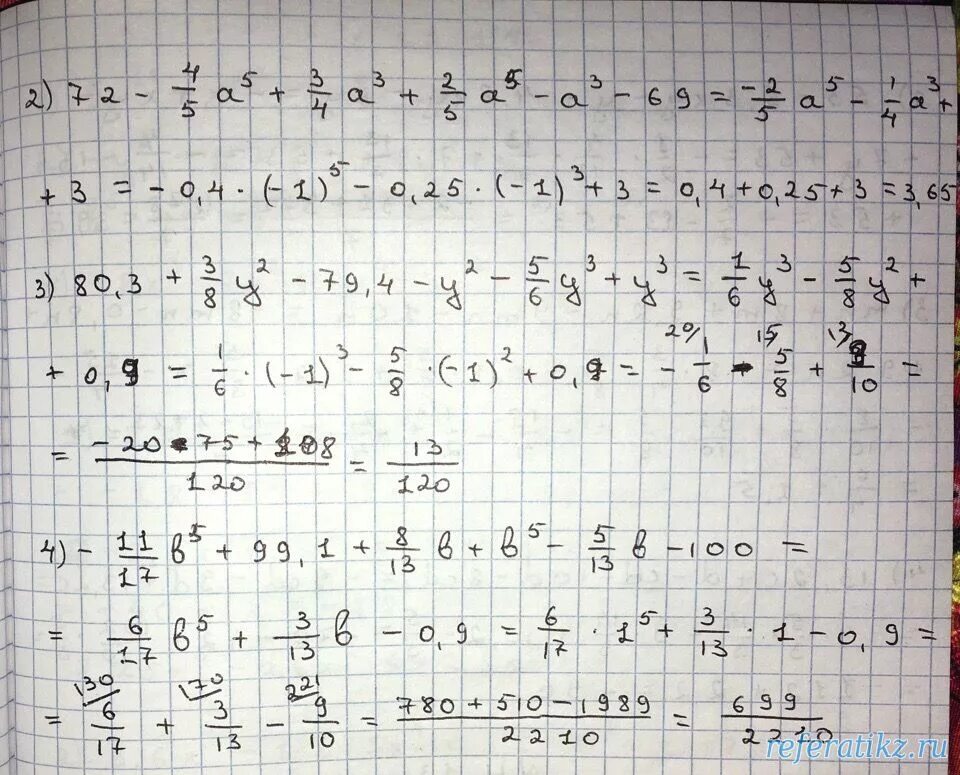 2) 72 - 4/5 a⁵ + 3/4 a³ + 2/5 a⁵ - a³ - 69 = -2/5 a⁵ - 1/4 a³ +
+ 3 = - 0,4 · (-1)⁵ - 0,25 · (-1)³ + 3 = 0,4 + 0,25 + 3 = 3,65
3) 80,3 + 3/8 y² - 79,4 - y² - 5/6 y³ + y³ = 1/6 y³ - 5/8 y² +
+ 0,9 = 1/6 · (-1)³ - 5/8 · (-1)² + 0,9 = - 20/ 1/6 - 15/ 5/8 + 13/ 9/10 =
= (-20 - 75 + 108)/120 = 13/120
4) - 11/17 b⁵ + 99,1 + 8/13 b + b⁵ - 5/13 b - 100 =
= 6/17 b⁵ + 3/13 b - 0,9 = 6/17 · 1⁵ + 3/13 · 1 - 0,9 =
= 130/ 6/17 + 170/ 3/13 - 221/ 9/10 = (780 + 510 - 1989)/2210 = 699/2210
referatikz.ru